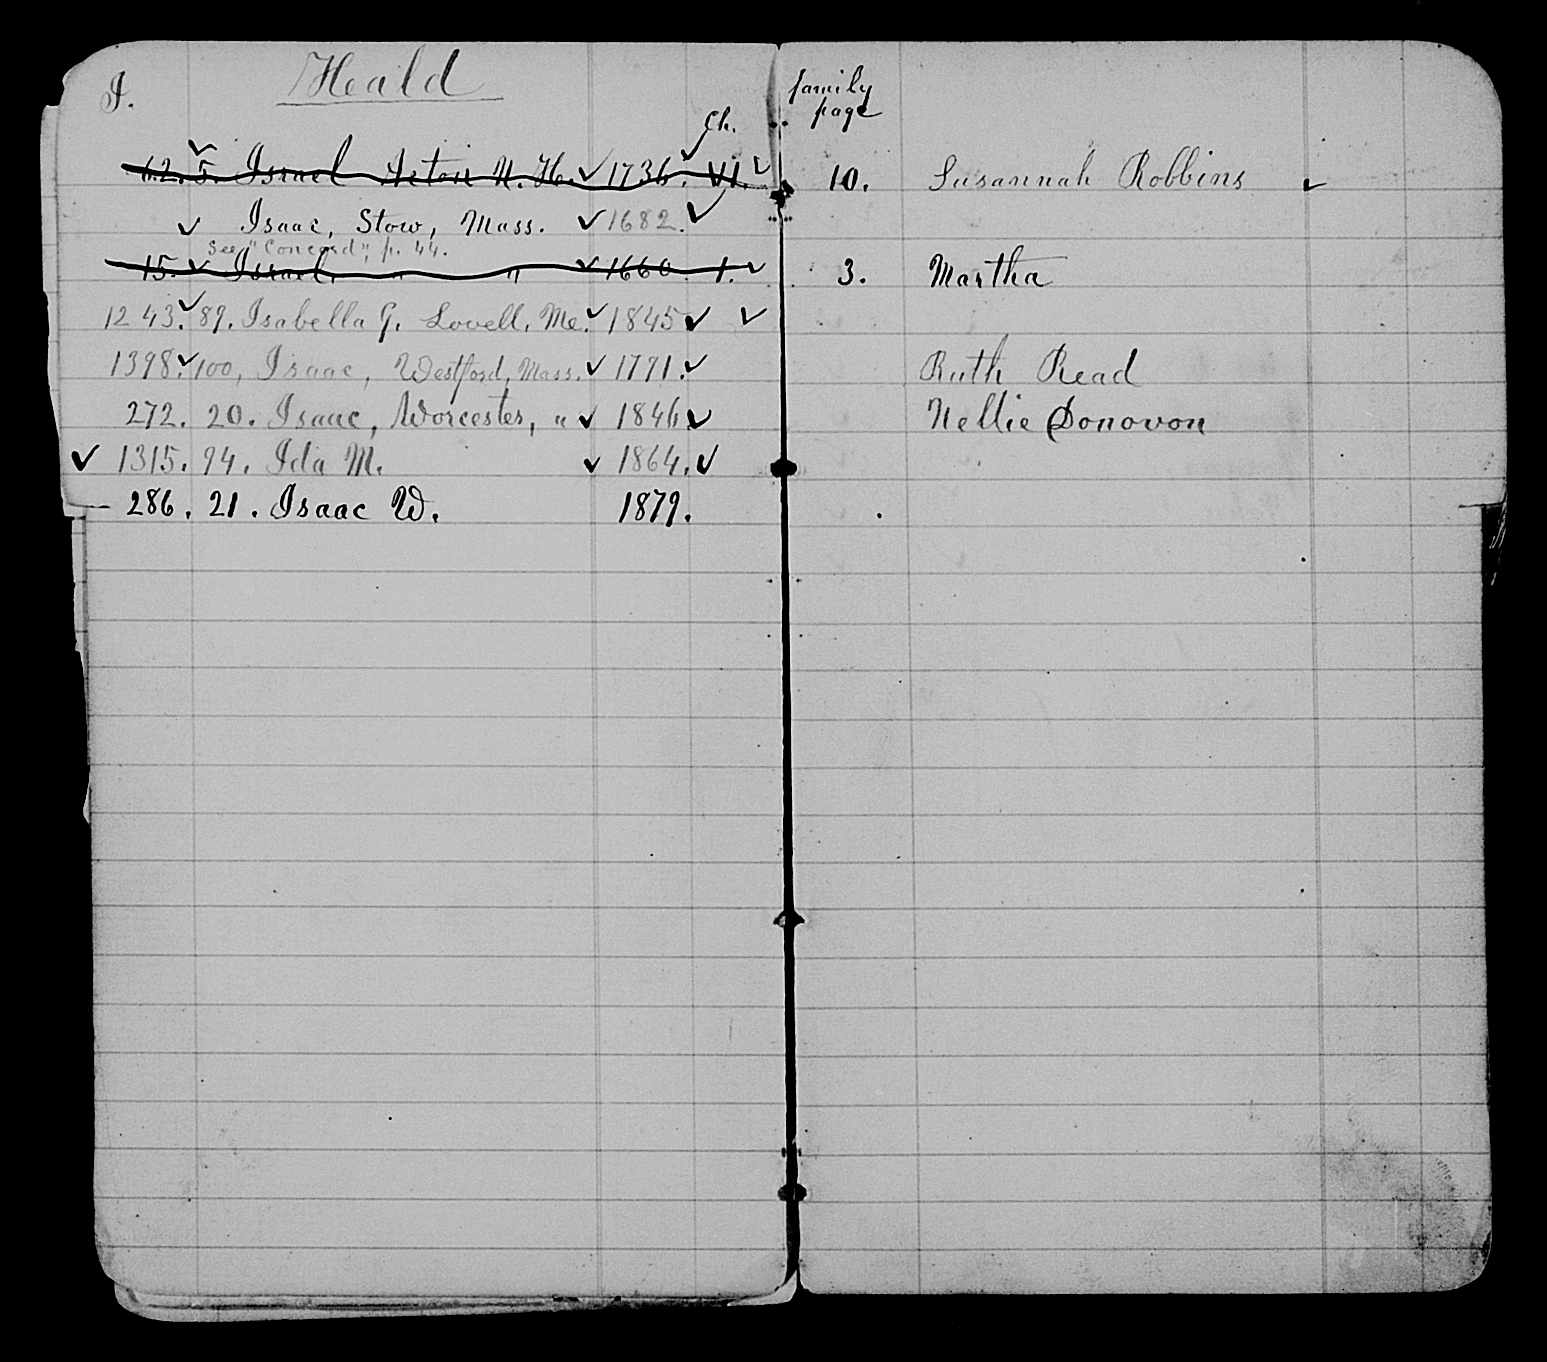 I. Heald family
Ch. page
62. 5. Israel Acton N. H. ✓ 1736. ✓ VI. ✓ 10. Susannah Robbins ✓
✓ Isaac, Stow, Mass. ✓ 1682. ✓
See "Concord", p. 44.
15. ✓ Israel, " " ✓ 1660 1. ✓ 3. Martha
1243. ✓ 89. Isabella G. Lovell, Me. ✓ 1845 ✓ ✓
1398. ✓ 100, Isaac, Westford, Mass. ✓ 1791. ✓ Ruth Read
272. 20. Isaac, Worcester, " ✓ 1846 ✓ Nellie Donovon
✓ 1315. 94. Ida M. ✓ 1864. ✓
286. 21. Isaac W. 1879.